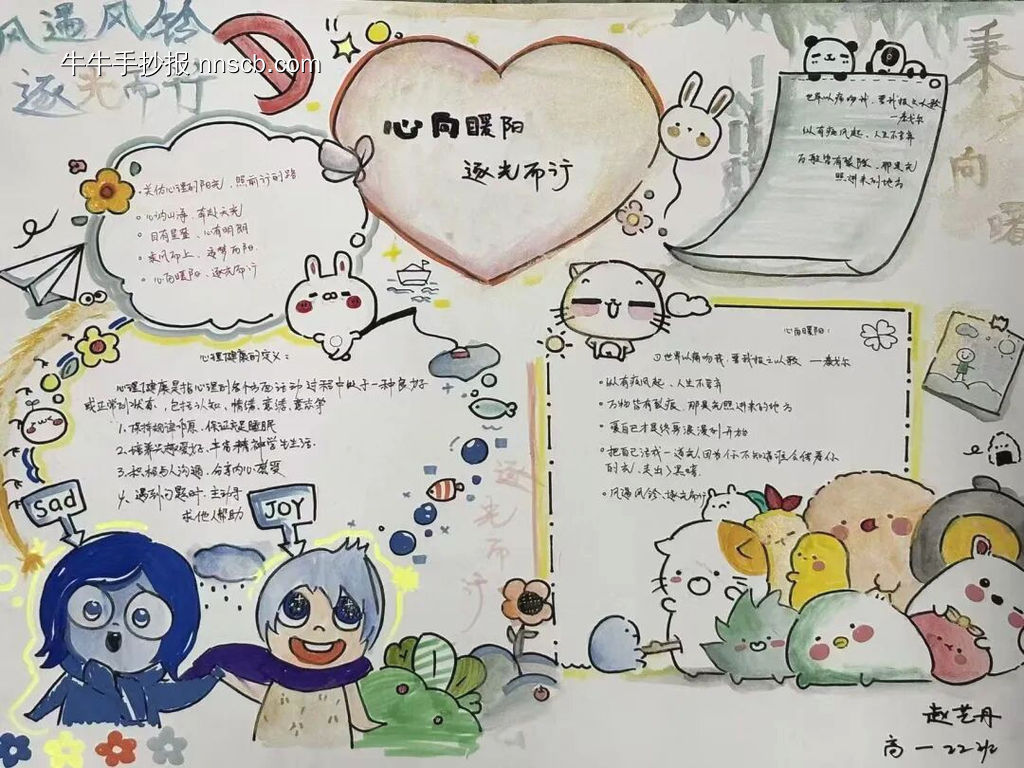 风遇风铃
逐光而行
牛牛手抄报 nnscb.com
心向暖阳
逐光而行
世界以痛吻我,要我报之以歌
—泰戈尔
纵有疾风起,人生不言弃
万物皆有裂隙,那是光
照进来的地方
秉
向
曙
关于心理的阳光,照前行的路
心的山海,奔赴天光
目有星星、心有明朗
乘风而上、逐梦而阳
心向暖阳、逐光而行
心理健康的定义:
心理健康是指心理的各个方面活动过程中处于一种良好
或正常的状态,包括认知、情绪、意志、意识等
1.保持规律作息,保证充足睡眠
2.培养兴趣爱好,丰富精神学生生活
3.积极与人沟通,分享内心感受
4.遇到问题时,主动寻
求他人帮助
Sad
JOY
逐光而行
心向暖阳:
①世界以痛吻我,要我报之以歌 —泰戈尔
纵有疾风起、人生不言弃
万物皆有裂痕,那是光照进来的地方
爱自己才是终身浪漫的开始
把自己活成一道光,因为你不知道谁会借着你
的光,走出了黑暗.
风遇风铃、逐光而行
赵芷丹
高一22班